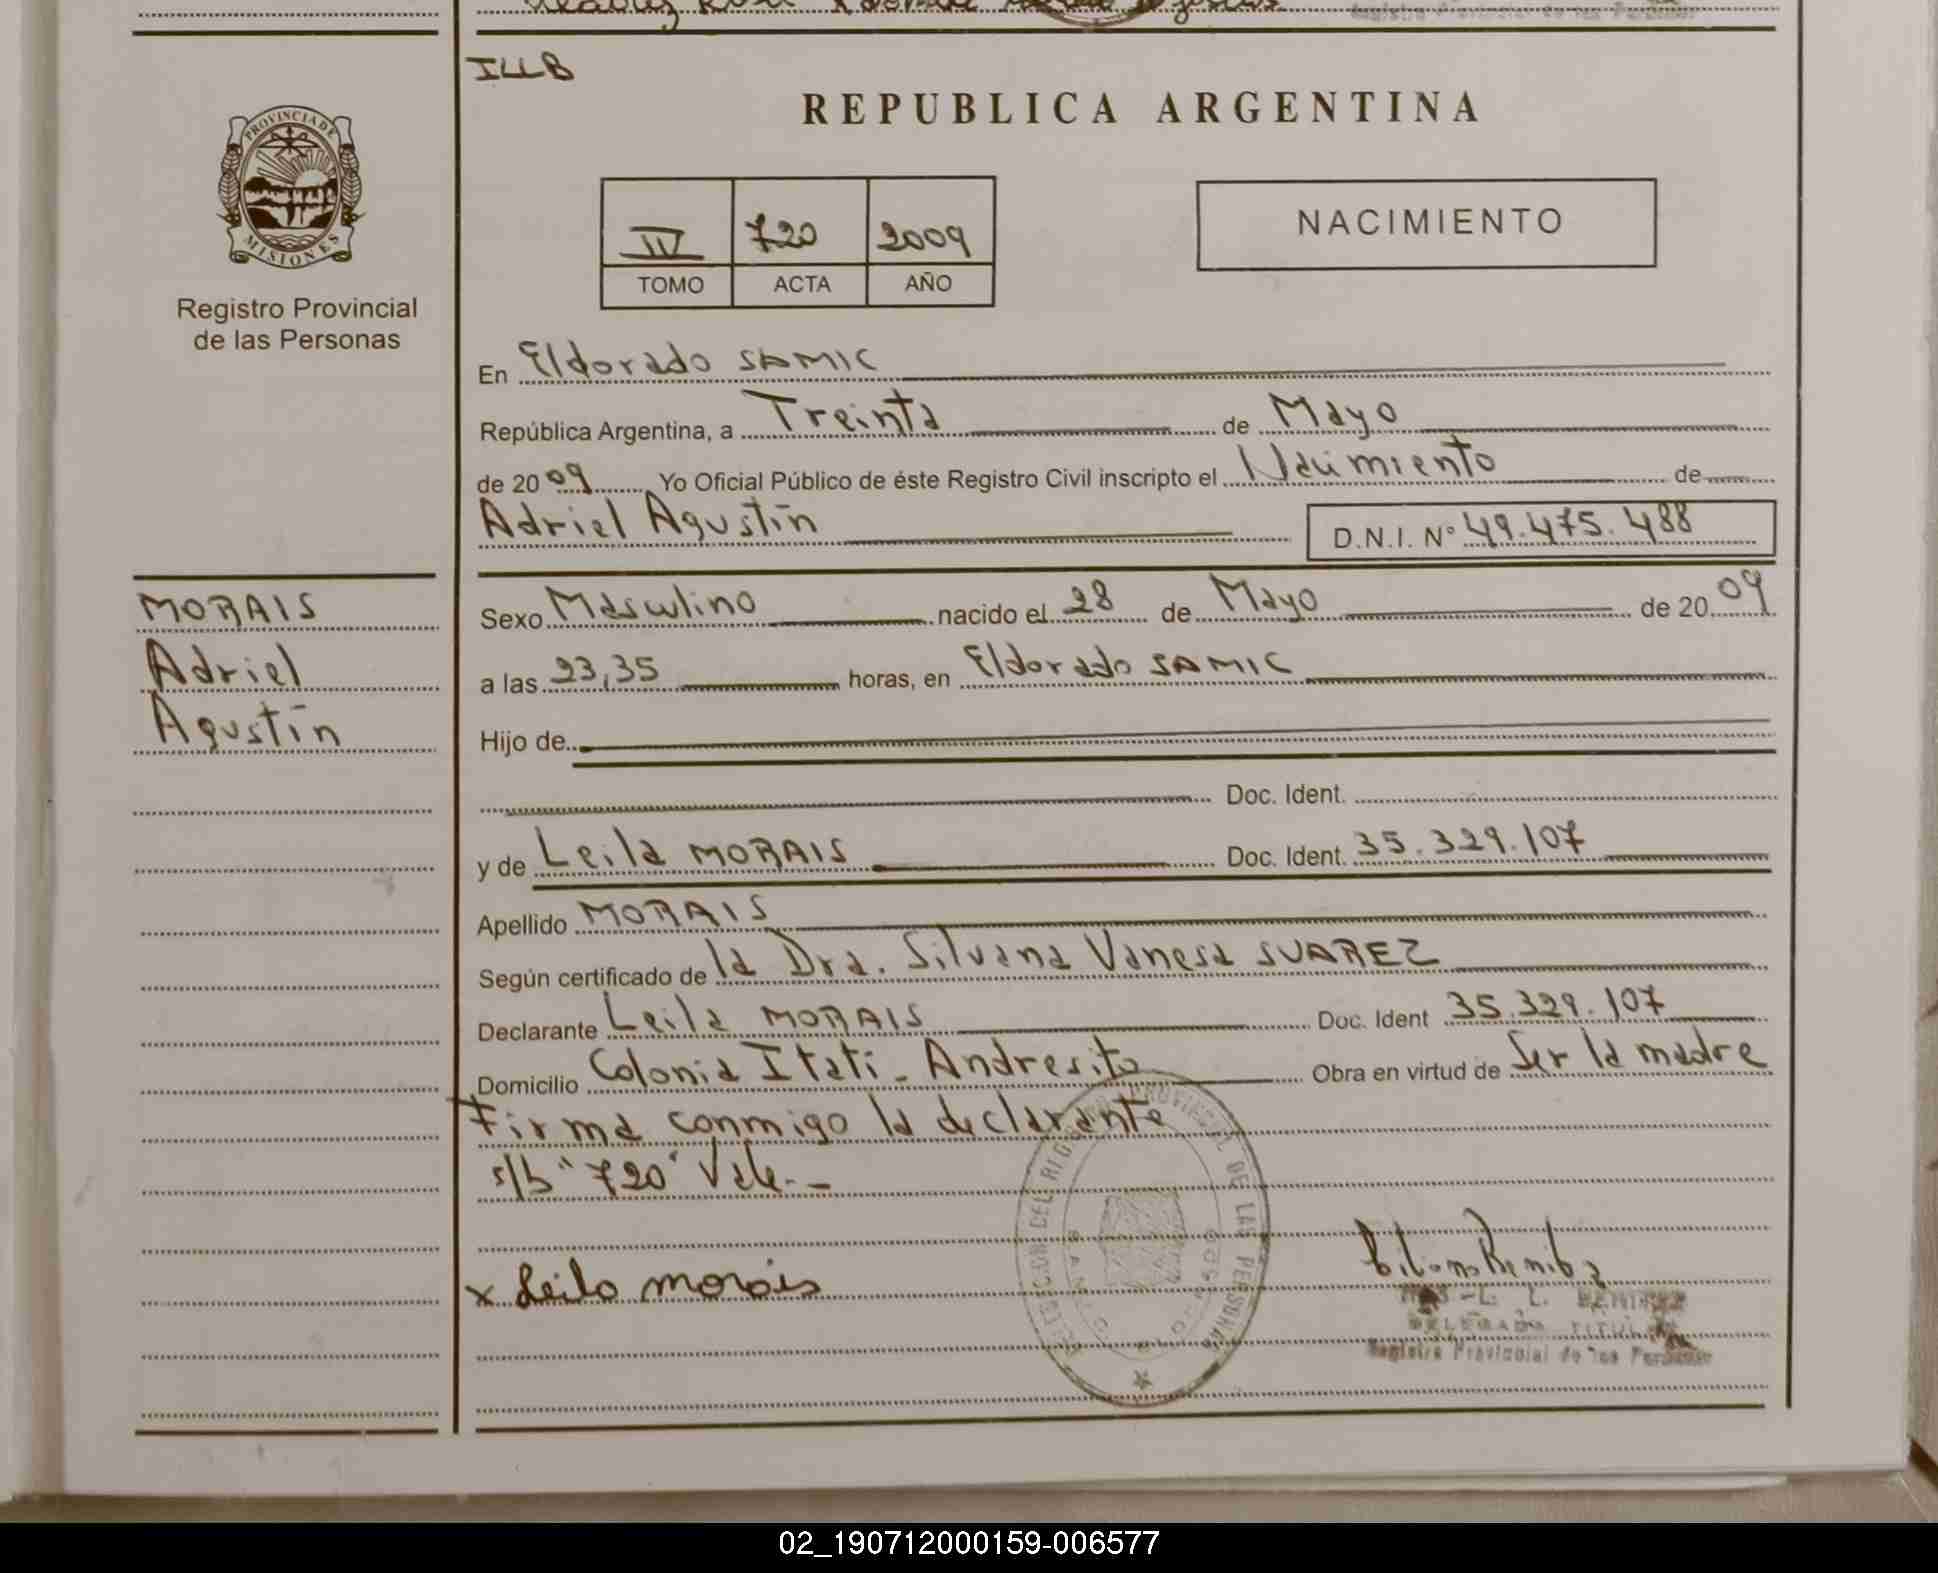 ILLB
PROVINCIA DE
MISIONES
Registro Provincial
de las Personas
REPUBLICA ARGENTINA
IV 720 2009
TOMO ACTA AÑO
NACIMIENTO
En Eldorado SAMIC
República Argentina, a Treinta de Mayo
de 2009 Yo Oficial Público de éste Registro Civil inscripto el Nacimiento de
Adriel Agustín D.N.I. Nº 49.475.488
MORAIS
Adriel
Agustín
Sexo Masculino nacido el 28 de Mayo de 2009
a las 23,35 horas, en Eldorado SAMIC
Hijo de
Doc. Ident.
y de Leila MORAIS Doc. Ident. 35.329.107
Apellido MORAIS
Según certificado de la Dra. Silvana Vanesa SUAREZ
Declarante Leila MORAIS Doc. Ident 35.329.107
Domicilio Colonia Itatí - Andresito Obra en virtud de Ser la madre
Firma conmigo la declarante
s/b "720" Vale.-
x Leila morais
PROVINCIAL DE LAS PERSONAS
L. BENITEZ
DELEGADO TITULAR
Registro Provincial de las Personas
02_190712000159-006577